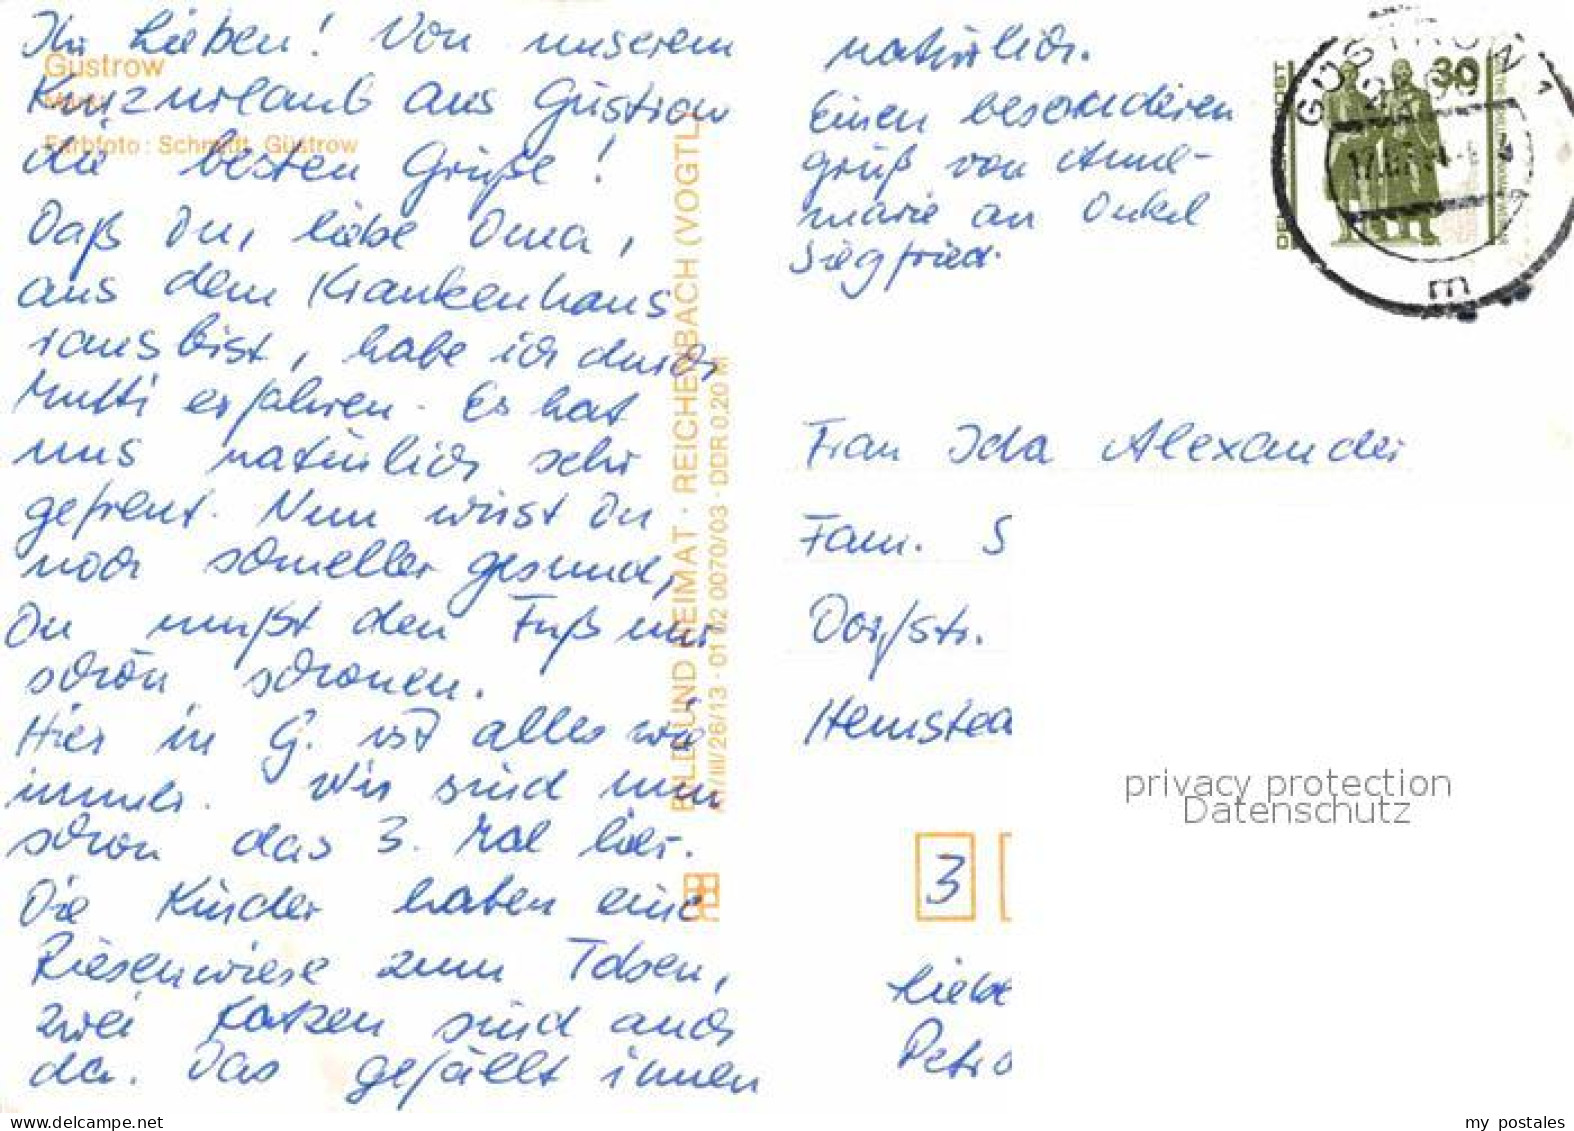 Ihr Lieben! Von unserem
Kurzurlaub aus Güstrow
die besten Grüße!
Daß Du, liebe Oma,
aus dem Krankenhaus
raus bist, habe ich durch
Mutti erfahren. Es hat
uns natürlich sehr
gefreut. Nun wirst Du
noch schneller gesund,
Du mußt den Fuß nur
schön schonen.
Hier in G. ist alles wie
immer. Wir sind nun
schon das 3. Mal hier.
Die Kinder haben eine
Riesenwiese zum Toben,
zwei Katzen sind auch
da. Das gefällt ihnen
natürlich.
Einen besonderen
Gruß von Anne-
marie an Onkel
Siegfried.
Güstrow
Markt
Farbfoto: Schmitt, Güstrow
BILD UND HEIMAT · REICHENBACH (VOGTL.)
A1/III/26/13 · 01 02 0070/03 · DDR 0,20 M
30
GÜSTROW 1
m
Frau Ida Alexander
Fam. S
Dorfstr.
Hemstea
3
Liebe
Petro
privacy protection
Datenschutz
www.delcampe.net
my_postales